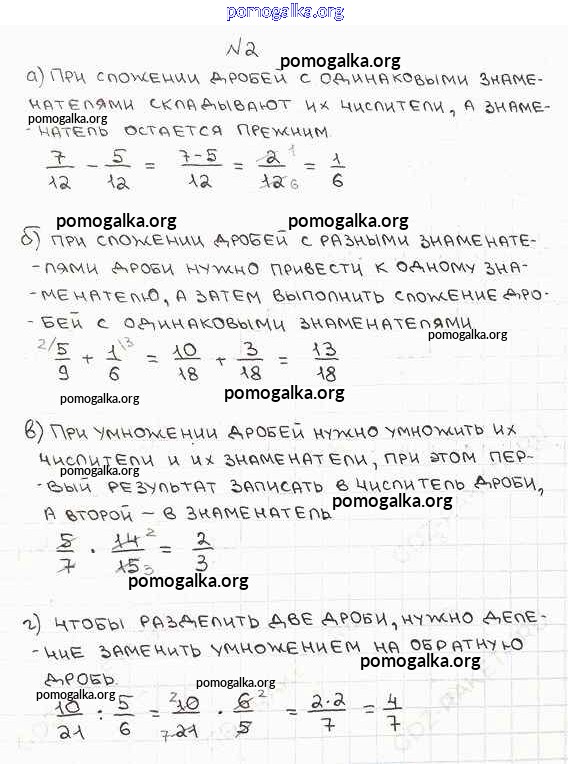 pomogalka.org
№2
pomogalka.org
а) При сложении дробей с одинаковыми знаме-
нателями складывают их числители, а знаме-
pomogalka.org
-натель остается прежним.
7/12 - 5/12 = 7-5/12 = 2¹/12₆ = 1/6
pomogalka.org pomogalka.org
б) При сложении дробей с разными знаменате-
-лями дроби нужно привести к одному зна-
-менателю, а затем выполнить сложение дро-
-бей с одинаковыми знаменателями
pomogalka.org
²⁾5/9 + 1⁽³/6 = 10/18 + 3/18 = 13/18
pomogalka.org pomogalka.org
в) При умножении дробей нужно умножить их
числители и их знаменатели, при этом пер-
pomogalka.org
-вый результат записать в числитель дроби,
pomogalka.org
а второй – в знаменатель
5/7 · 14²/15₃ = 2/3
pomogalka.org
г) Чтобы разделить две дроби, нужно деле-
-ние заменить умножением на обратную
pomogalka.org
дробь.
pomogalka.org pomogalka.org
10/21 : 5/6 = ²10/₇21 · 6²/5 = 2·2/7 = 4/7